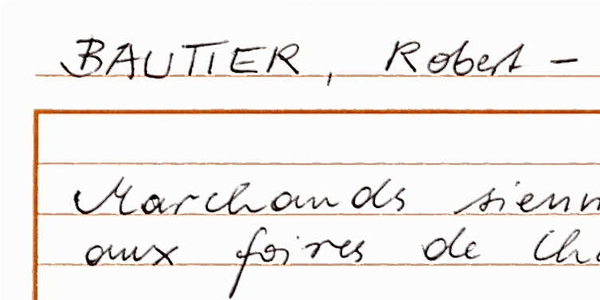 BAUTIER, Robert -
Marchands sienn
aux foires de Cha